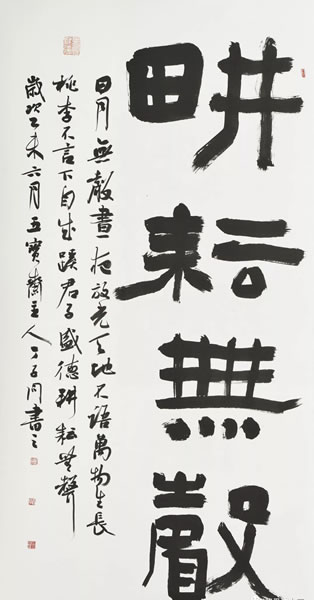 畊耘無聲
日月無聲晝夜放光天地不語萬物生長
桃李不言下自成蹊君子盛德畊耘無聲
歲次乙未六月五寶齋主人丁書之